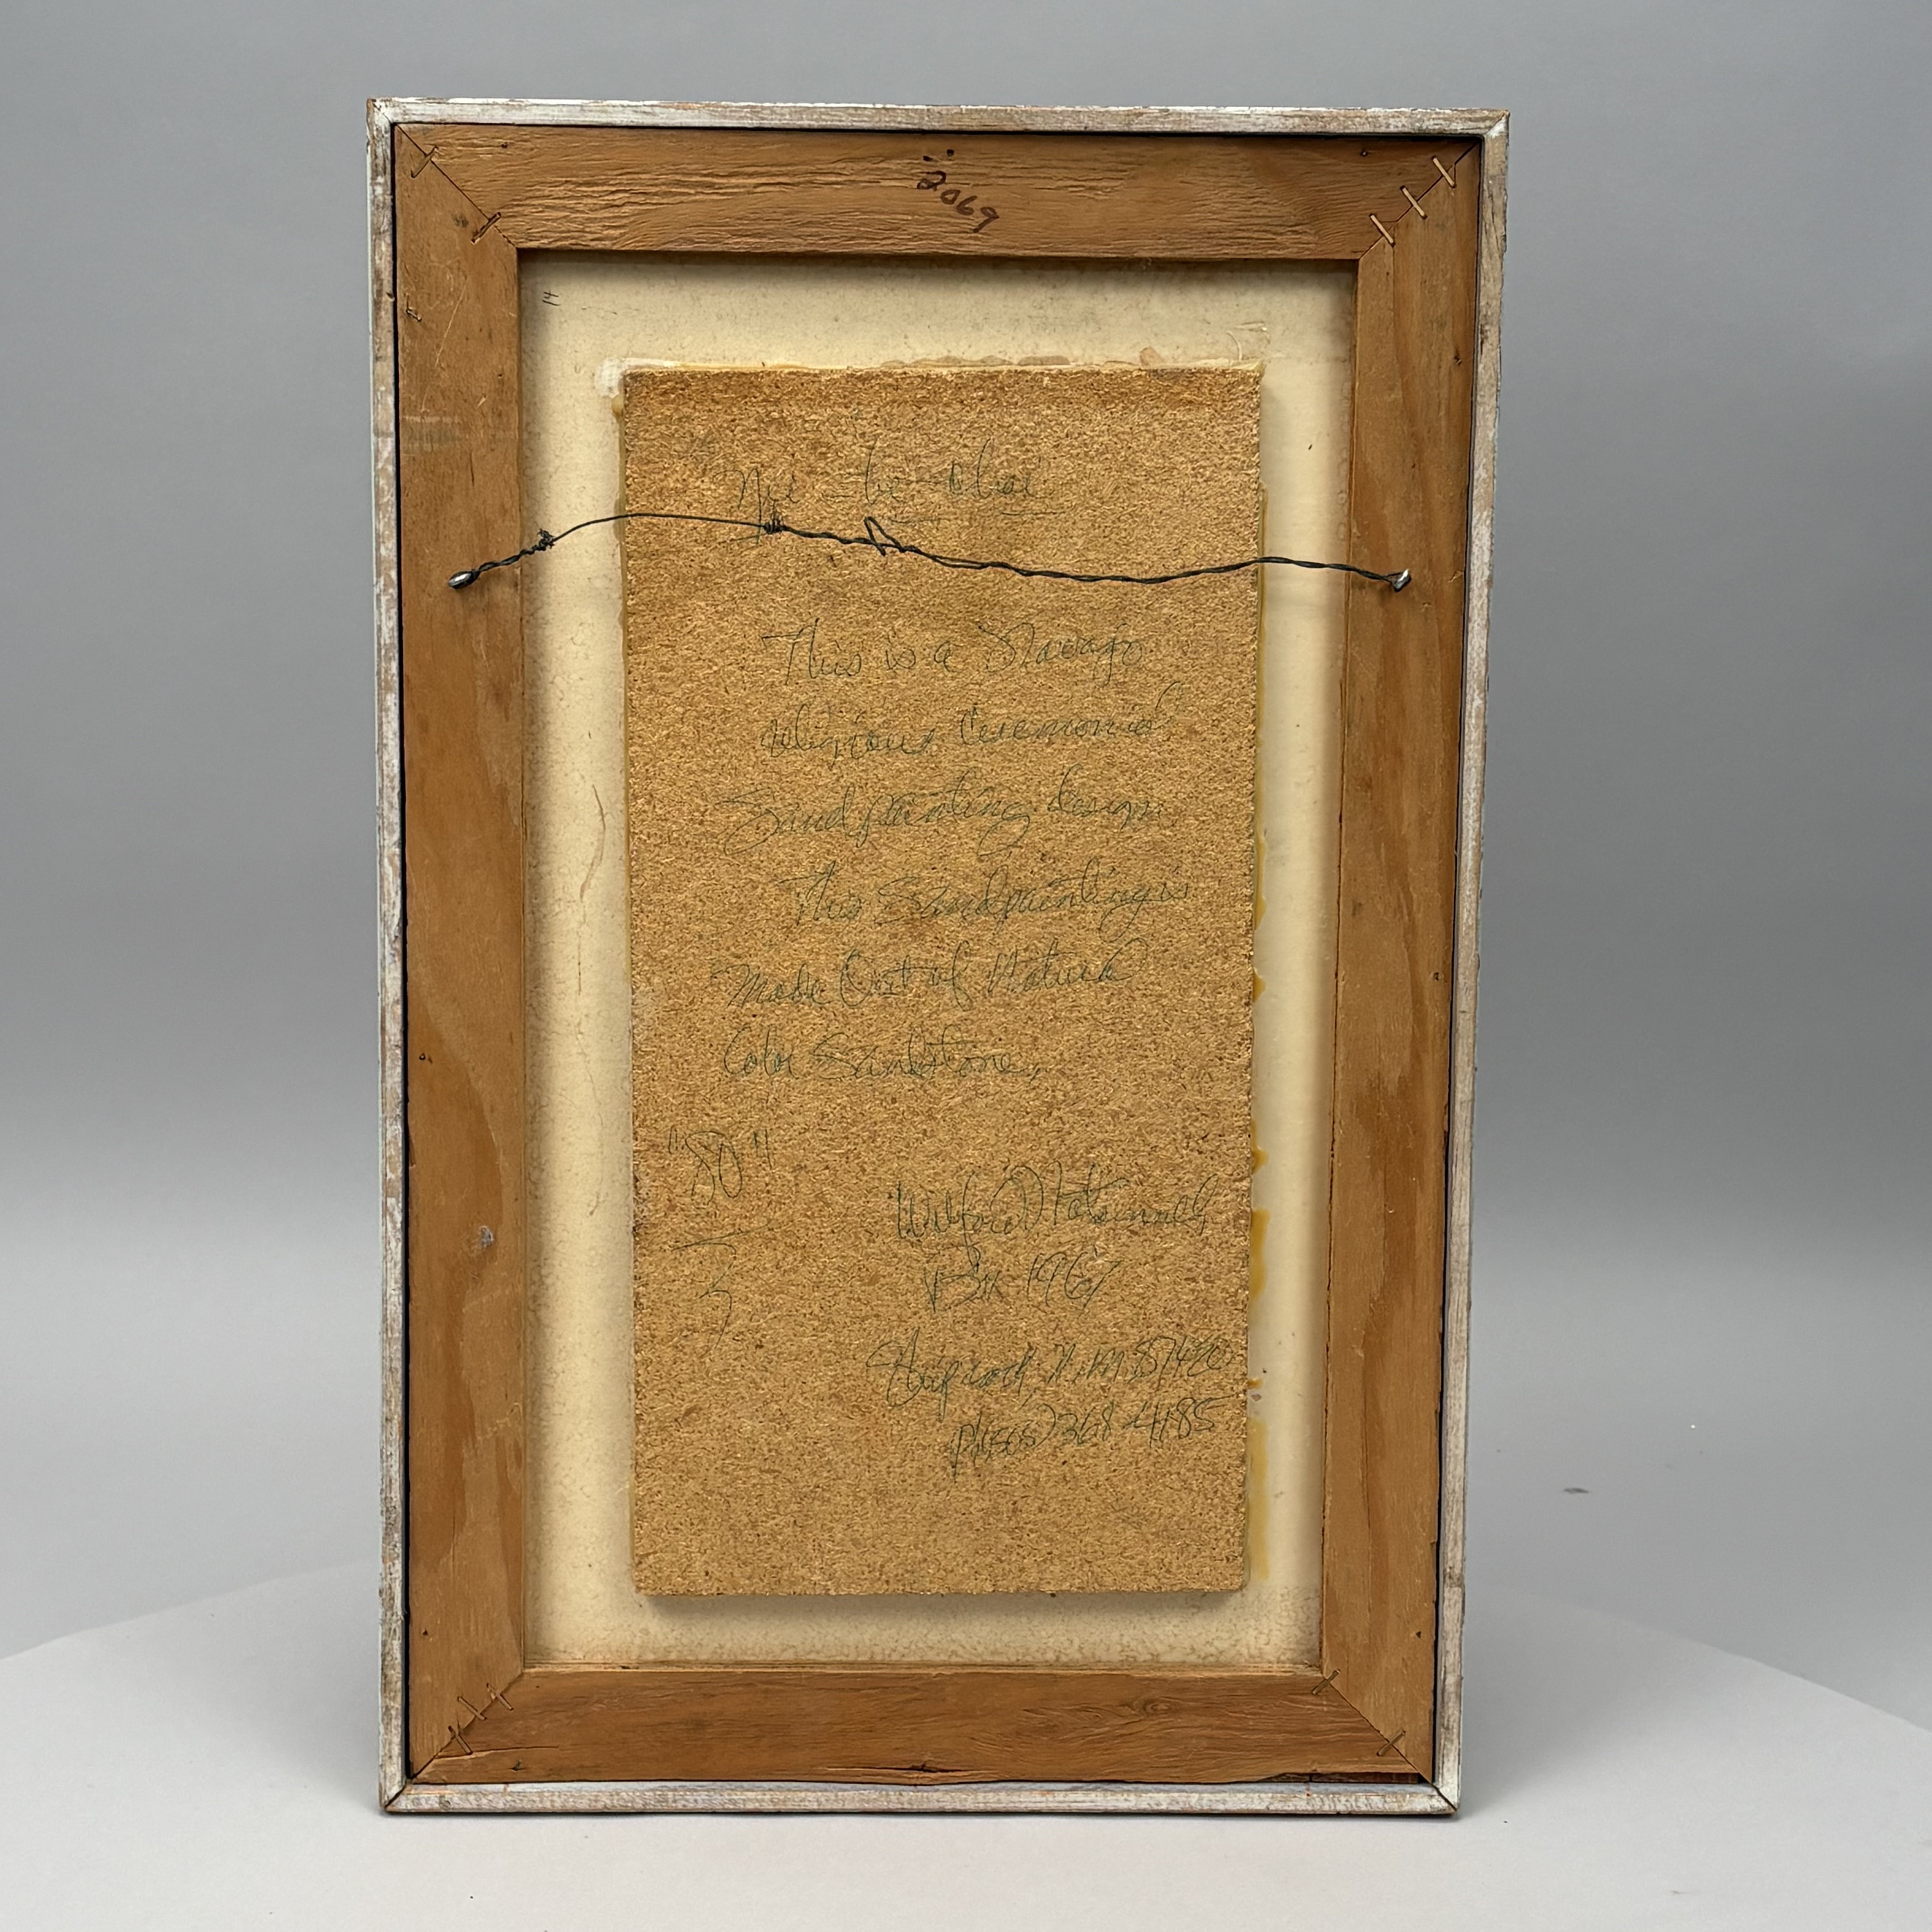 2069
This is a Navajo
religious Ceremonial
Sandpainting design
This Sandpainting is
Made Out of Natural
Color Sandstone,
"80"
Wilford
Box 1967
Shiprock, N.M. 87420
368-4185